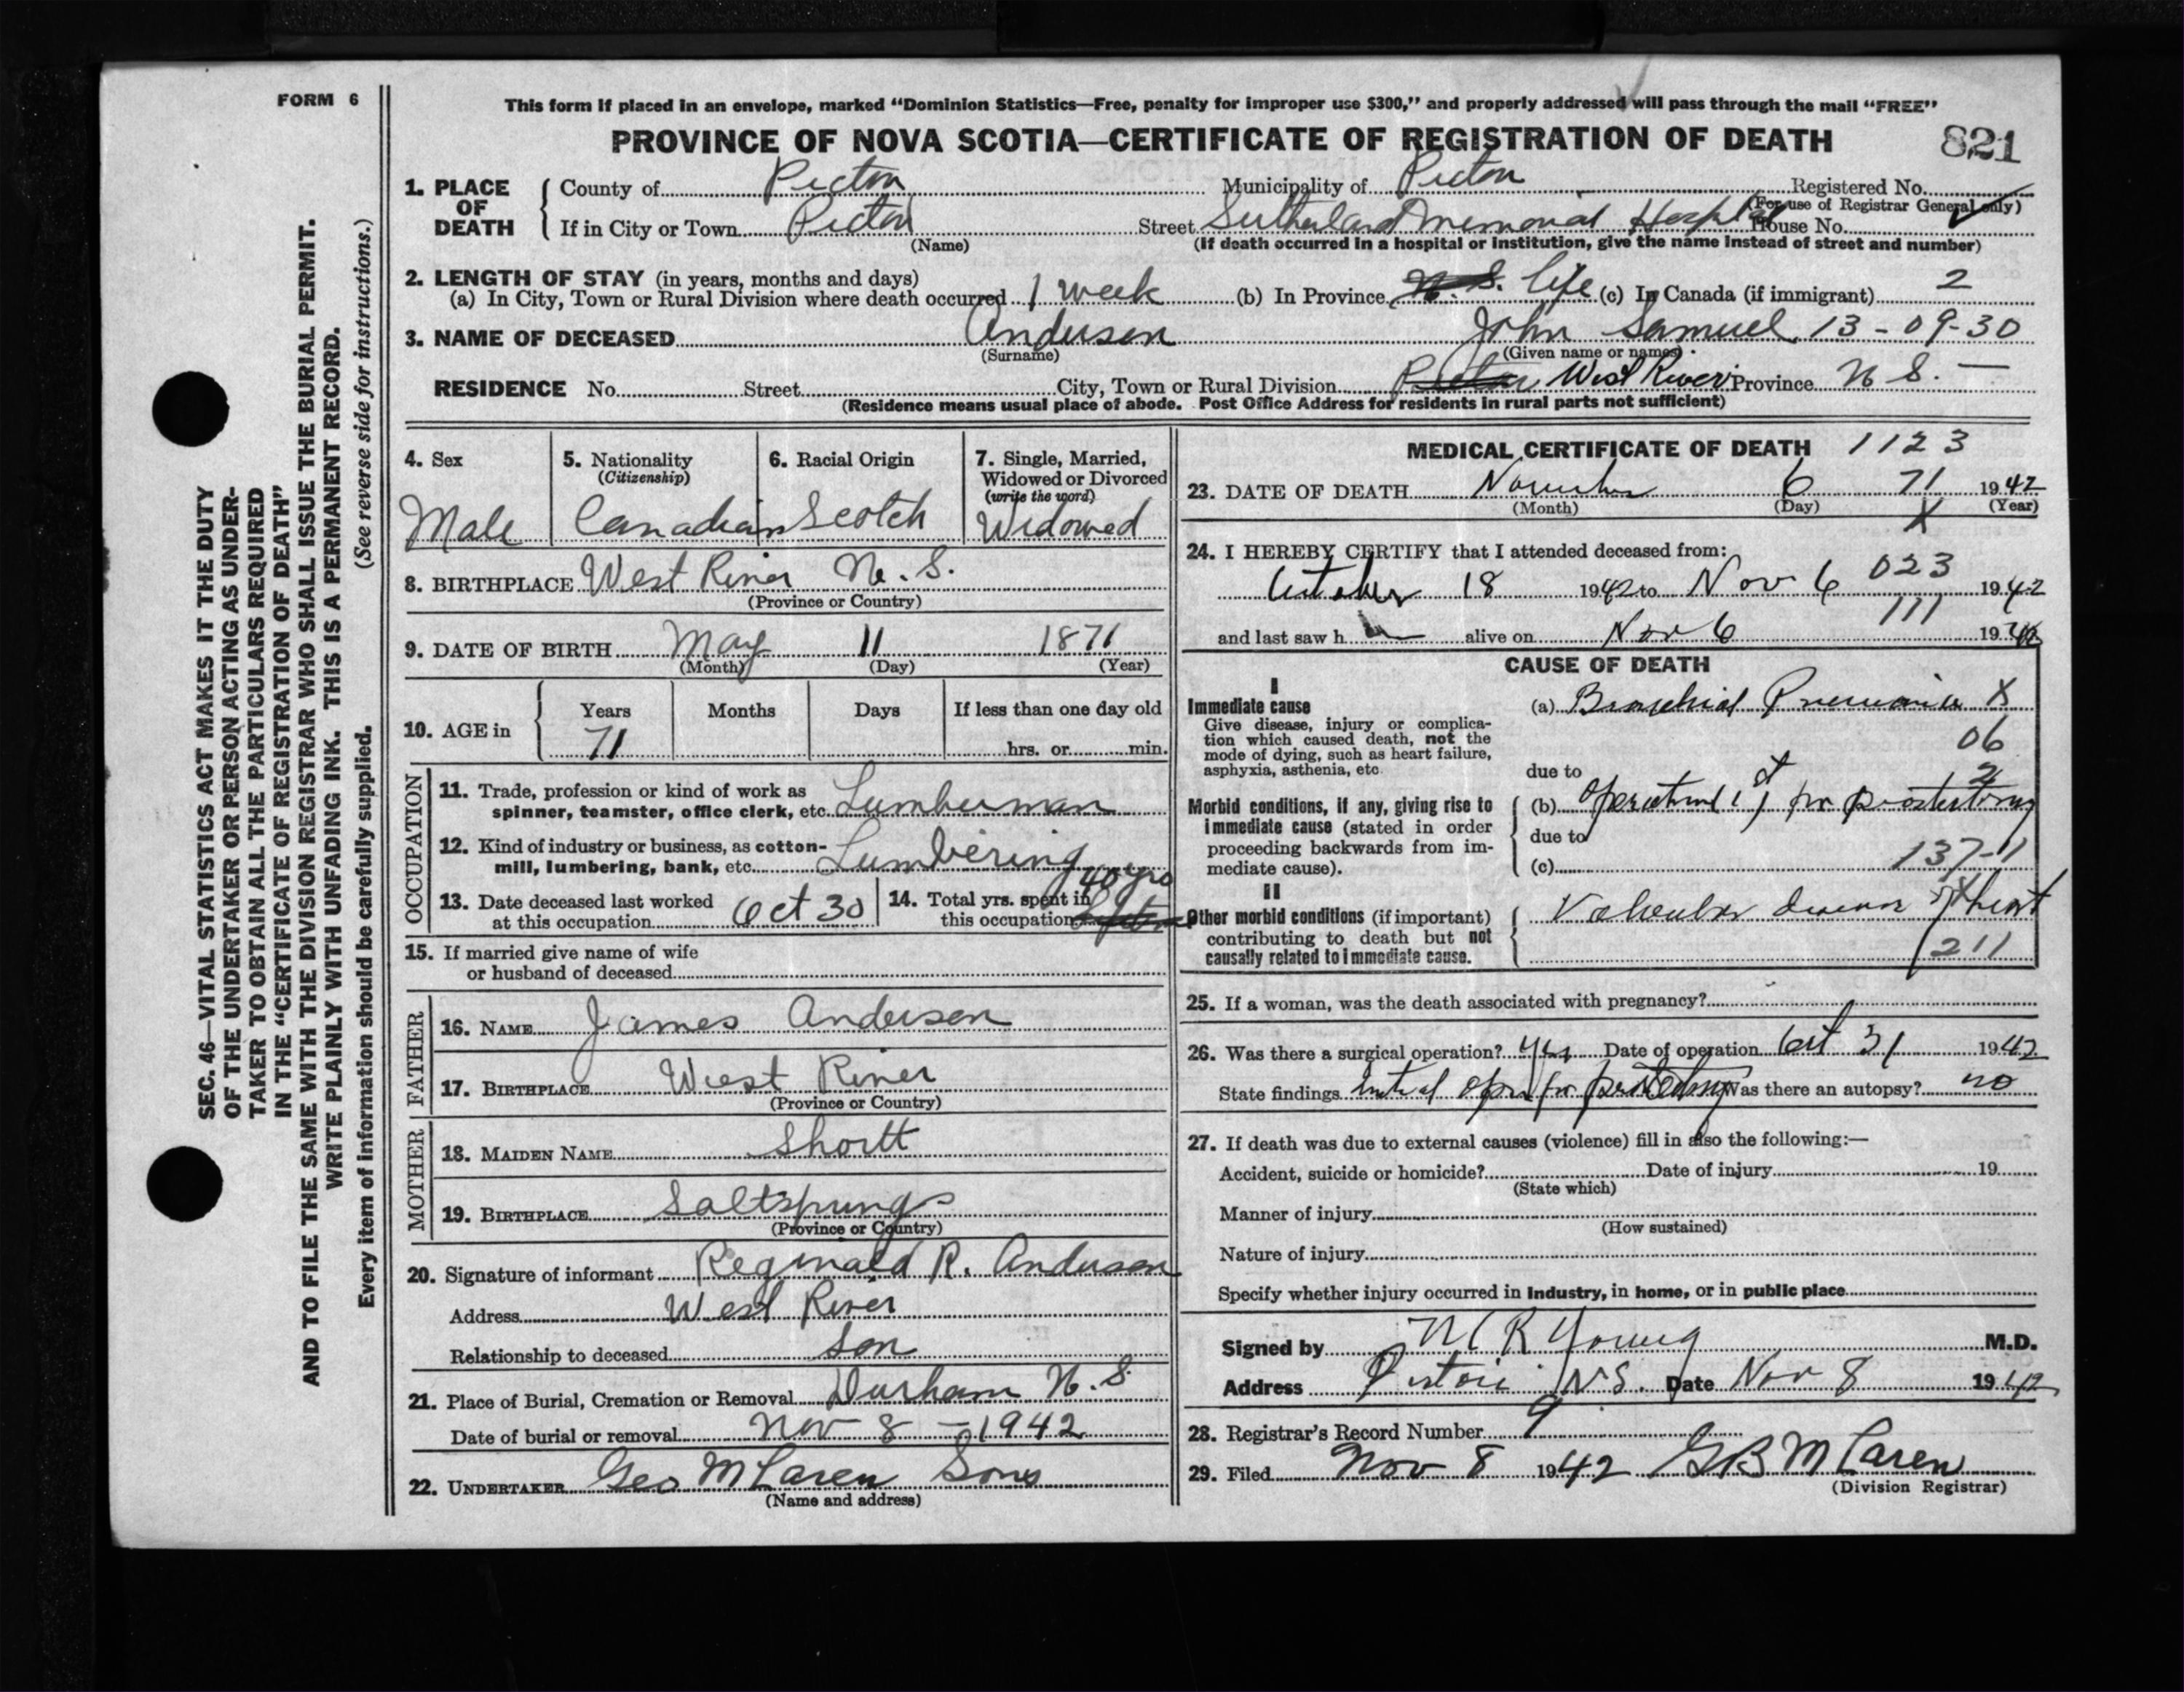 FORM 6
This form if placed in an envelope, marked “Dominion Statistics—Free, penalty for improper use $300,” and properly addressed will pass through the mail “FREE”
PROVINCE OF NOVA SCOTIA—CERTIFICATE OF REGISTRATION OF DEATH 821
1. PLACE OF DEATH
County of Pictou Municipality of Pictou Registered No.
(For use of Registrar General only)
If in City or Town Pictou Street Sutherland Memorial Hospital House No.
(Name) (If death occurred in a hospital or institution, give the name instead of street and number)
2. LENGTH OF STAY (in years, months and days)
(a) In City, Town or Rural Division where death occurred 1 week (b) In Province N.S. life (c) In Canada (if immigrant) 2
3. NAME OF DECEASED Anderson John Samuel 13-09-30
(Surname) (Given name or names)
RESIDENCE No. Street City, Town or Rural Division Pictou West River Province N S. —
(Residence means usual place of abode. Post Office Address for residents in rural parts not sufficient)
4. Sex
Male
5. Nationality
(Citizenship)
Canadian
6. Racial Origin
Scotch
7. Single, Married, Widowed or Divorced
(write the word)
Widowed
8. BIRTHPLACE West River N.S.
(Province or Country)
9. DATE OF BIRTH May 11 1871
(Month) (Day) (Year)
10. AGE in
Years Months Days If less than one day old
71 hrs. or min.
OCCUPATION
11. Trade, profession or kind of work as
spinner, teamster, office clerk, etc. Lumberman
12. Kind of industry or business, as cotton-
mill, lumbering, bank, etc. Lumbering
13. Date deceased last worked
at this occupation Oct 30
14. Total yrs. spent in
this occupation 40 yrs
15. If married give name of wife
or husband of deceased
FATHER
16. NAME James Anderson
17. BIRTHPLACE West River
(Province or Country)
MOTHER
18. MAIDEN NAME Shortt
19. BIRTHPLACE Saltsprings
(Province or Country)
20. Signature of informant Reginald R. Anderson
Address West River
Relationship to deceased son
21. Place of Burial, Cremation or Removal Durham N.S.
Date of burial or removal Nov 8 - 1942
22. UNDERTAKER Geo McLaren Sons
(Name and address)
MEDICAL CERTIFICATE OF DEATH 1123
23. DATE OF DEATH November 6 71 1942
(Month) (Day) X (Year)
24. I HEREBY CERTIFY that I attended deceased from:
October 18 1942 to Nov 6 023 1942
and last saw h alive on Nov 6 111 1942
CAUSE OF DEATH
I
Immediate cause
Give disease, injury or complica-
tion which caused death, not the
mode of dying, such as heart failure,
asphyxia, asthenia, etc.
(a) Bronchial Pneumonia X
06
due to 2
Morbid conditions, if any, giving rise to
immediate cause (stated in order
proceeding backwards from im-
mediate cause).
(b) for
due to
(c) 137-1
II
Other morbid conditions (if important)
contributing to death but not
causally related to immediate cause.
Valvular disease of heart
211
25. If a woman, was the death associated with pregnancy?
26. Was there a surgical operation? yes Date of operation Oct 31 1942
State findings for Was there an autopsy? no
27. If death was due to external causes (violence) fill in also the following:—
Accident, suicide or homicide? Date of injury 19
(State which)
Manner of injury
(How sustained)
Nature of injury
Specify whether injury occurred in Industry, in home, or in public place
Signed by R Young M.D.
Address Pictou N.S. Date Nov 8 1942
28. Registrar’s Record Number 9
29. Filed Nov 8 1942 G B McLaren
(Division Registrar)
SEC. 46—VITAL STATISTICS ACT MAKES IT THE DUTY
OF THE UNDERTAKER OR PERSON ACTING AS UNDER-
TAKER TO OBTAIN ALL THE PARTICULARS REQUIRED
IN THE “CERTIFICATE OF REGISTRATION OF DEATH”
AND TO FILE THE SAME WITH THE DIVISION REGISTRAR WHO SHALL ISSUE THE BURIAL PERMIT.
WRITE PLAINLY WITH UNFADING INK. THIS IS A PERMANENT RECORD.
Every item of information should be carefully supplied. (See reverse side for instructions.)